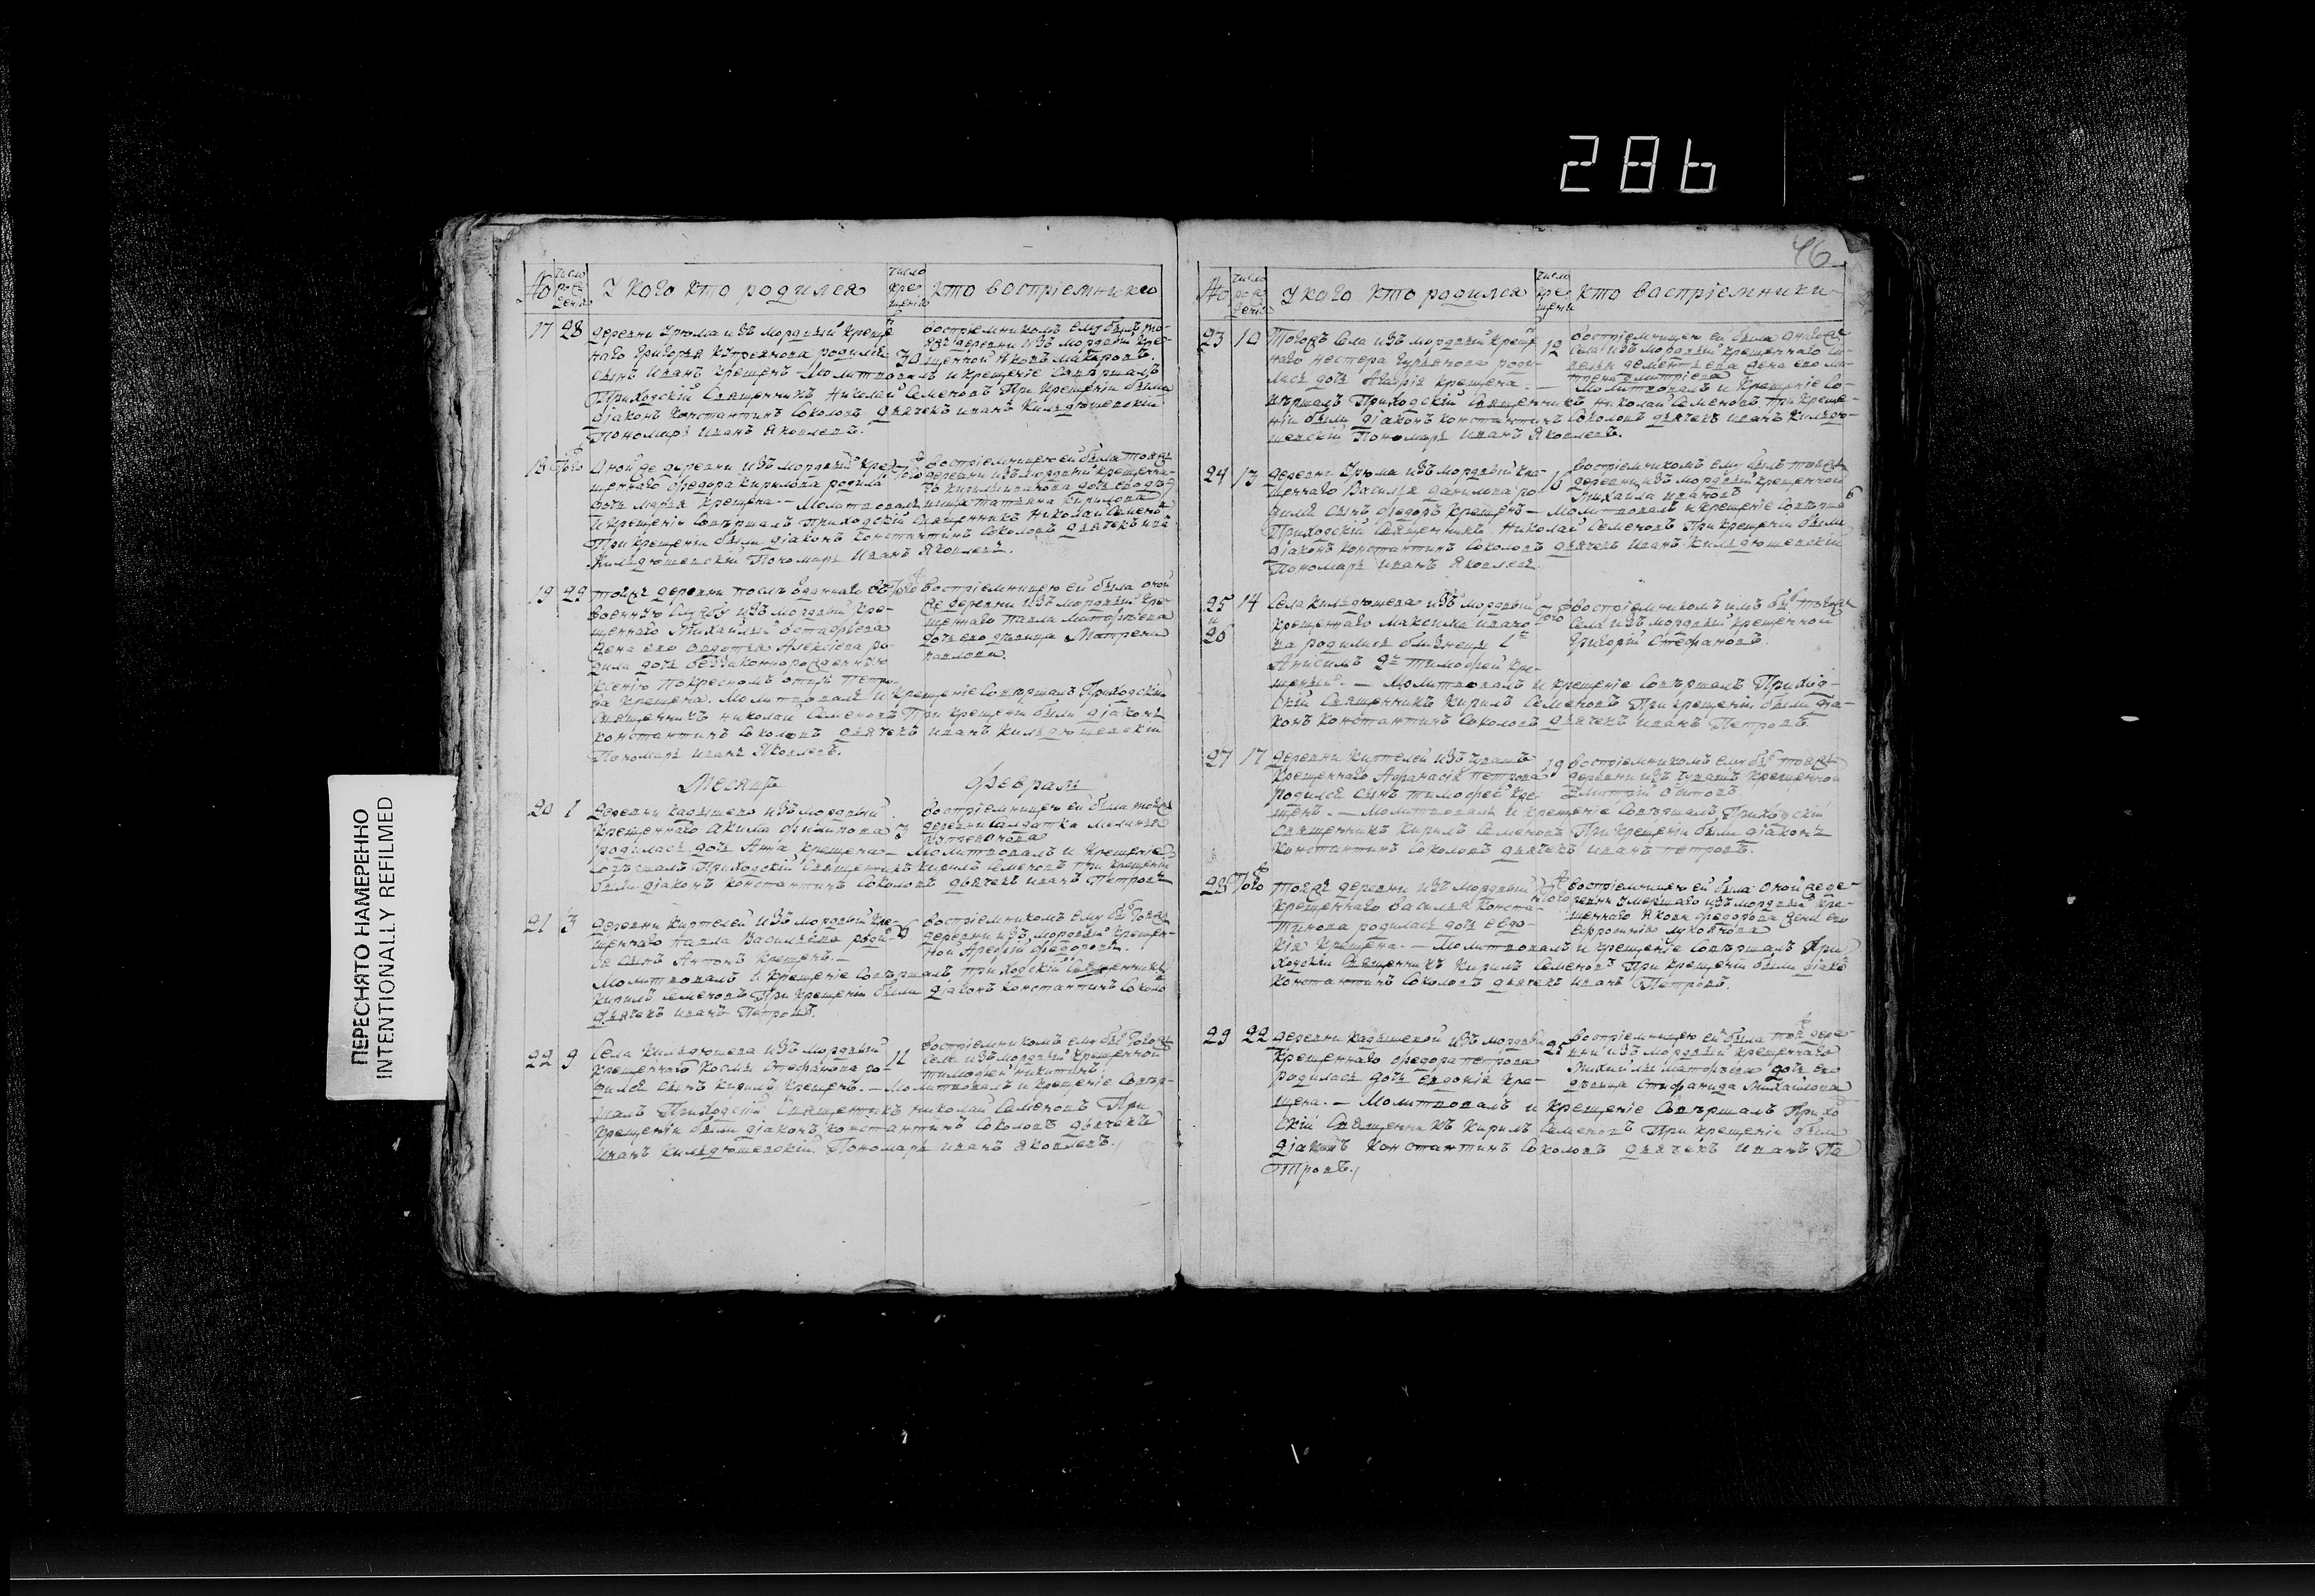 286
46
ПЕРЕСНЯТО НАМЕРЕННО
INTENTIONALLY REFILMED
№ число рождения У кого кто родился число крещенія кто воспріемники
17 28 деревни Урюма изъ мордвы креще-
наго Григорья родился 30
сынъ иванъ крещенъ молитвовалъ и крещеніе совершалъ
Приходскій Священникъ Николай Семеновъ При крещеніи были
діаконъ Константинъ Соколовъ дьячекъ иванъ Кильдюшевскій
Пономарь иванъ Яковлевъ.
воспріемникомъ ему былъ то-
яжъ деревни изъ мордвы кре-
щенной Яковъ Макаровъ.
18 того Оной же деревни изъ мордвы кре-
щеннаго федора Кирилова родила
дочь марья крещена. — Молитвовалъ
и крещеніе совершалъ Приходскій Священникъ Николай Семенов
При крещеніи были діаконъ Константинъ Соколовъ дьячекъ ива
Кильдюшевскій Пономарь иванъ Яковлевъ.
воспріемницею ей была тояжъ
деревни изъ мордвы крещенна-
го Кирила иванова дочь его дѣ-
вица татьяна Кирилова
19 29 тояжъ деревни послѣ отданнаго въ
военную службу изъ мордвы кре-
щеннаго Михайлы Остафьева
жена его авдотья Алексіева ро-
дила дочь беззаконнорожденную
ксенію по кресномъ отцѣ Петро-
ва крещена. молитвовалъ и крещеніе совершалъ Приходскій
Священникъ николай Семеновъ При крещеніи были діаконъ
константинъ Соколовъ дьячекъ иванъ Кильдюшевскій
Пономарь иванъ Яковлевъ.
воспріемницею ей была оной
же деревни изъ мордвы кре-
щеннаго Павла Матфѣева
дочь его дѣвица Матрена
павлова.
Месяцъ февраль
20 1 деревни кадышева изъ мордвы 3
крещеннаго акима филипова
родилась дочь Анна крещена — молитвовалъ и крещеніе
Совершалъ Приходскій Священникъ Кирилъ Семеновъ при крещеніи
были діаконъ константинъ Соколовъ дьячекъ иванъ Петровъ
воспріемницею ей была тояжъ
деревни Салдатка Меланья
21 3 деревни Киртелей изъ мордвы кре- 6
щеннаго Павла Васильева роди-
ся сынъ Антонъ крещенъ. —
молитвовалъ и крещеніе совершалъ приходскій Священникъ
Кирилъ Семеновъ При крещеніи были діаконъ константинъ Соколо
дьячекъ иванъ Петровъ.
воспріемникомъ ему бы тояжъ
деревни изъ мордвы крещен-
ной Арефій федоровъ.
22 9 Села Кильдюшева изъ мордвы 11
крещеннаго Космы Стефанова ро-
дился сынъ Кирилъ крещенъ. — молитвовалъ и крещеніе совер-
шалъ Приходскій Священникъ николай Семеновъ При
крещеніи были діаконъ константинъ Соколовъ дьячекъ
иванъ Кильдюшевскій Пономарь иванъ Яковлевъ.
воспріемникомъ ему бы тогожъ
села изъ мордвы крещенной
тимофей никитинъ.
№ число рожденія У кого кто родился число крещени кто воспріемники
23 10 Тогожъ села изъ мордвы креще
наго нестера Гурьянова роди-
лась дочь крещена. —
воспріемницею ей была онаго же
села изъ мордвы крещеннаго
дементьева жена его ма-
трена дмитріева
молитвовалъ и крещеніе со-
вершалъ Приходскій Священникъ николай Семеновъ При креще-
ніи были діаконъ константинъ Соколовъ дьячекъ иванъ Кильдю-
шевскій Пономарь иванъ Яковлевъ.
24 13 деревни Урюма изъ мордвы кре- 16
щеннаго Василья данилова ро-
дился сынъ федоръ крещенъ — молитвовалъ и крещеніе совершал
Приходскій Священникъ Николай Семеновъ При крещеніи были
діаконъ константинъ Соколовъ дьячекъ иванъ Кильдюшевскій
Пономарь иванъ Яковлев.
воспріемникомъ ему былъ тояжъ
деревни изъ мордвы крещенной
Михаила ивановъ
25 14 Села Кильдюшева изъ мордвы
и крещеннаго максима ивано-
26 ва родились близнецы 1й
Анисимъ 2й тимофей кре-
щены. — молитвовалъ и крещеніе совершалъ Приход-
скій Священникъ Кирилъ Семеновъ При крещеніи были діа-
конъ константинъ Соколовъ дьячекъ иванъ Петровъ
воспріемникомъ имъ бы тогожъ
села изъ мордвы крещенной
Григорій Стефановъ.
27 17 деревни Киртелей изъ чувашъ 19
крещеннаго Афанасія петрова
родился сынъ тимофей кре-
щенъ. — молитвовалъ и крещеніе совершалъ Приходскій
Священникъ Кирилъ Семеновъ При крещеніи были діаконъ
константинъ Соколовъ дьячекъ иванъ петровъ.
воспріемникомъ ему бы тояжъ
деревни изъ чувашъ крещенной
28 того тояжъ деревни изъ мордвы
крещеннаго василья конста-
тинова родилась дочь евдо-
кія крещена. — молитвовалъ и крещеніе совершалъ При
ходскій Священникъ Кирилъ Семеновъ При крещеніи были діако
константинъ Соколовъ дьячекъ иванъ Петровъ.
воспріемницею ей была оной же де-
ревни умершаго изъ мордвы кре-
щеннаго Якова федорова жена его
29 22 деревни кадышевой изъ мордвы
крещеннаго федора петрова
родилась дочь евдокія кре-
щена. — молитвовалъ и крещеніе совершалъ Прихо
скій Священникъ Кирилъ Семеновъ При крещеніи были
діаконъ константинъ Соколовъ дьячекъ иванъ Пе
тровъ.
воспріемницею ей была тоя дере-
вни изъ мордвы крещеннаго
Михайлы матфѣева дочь его
дѣвица Стефанида Михайлова